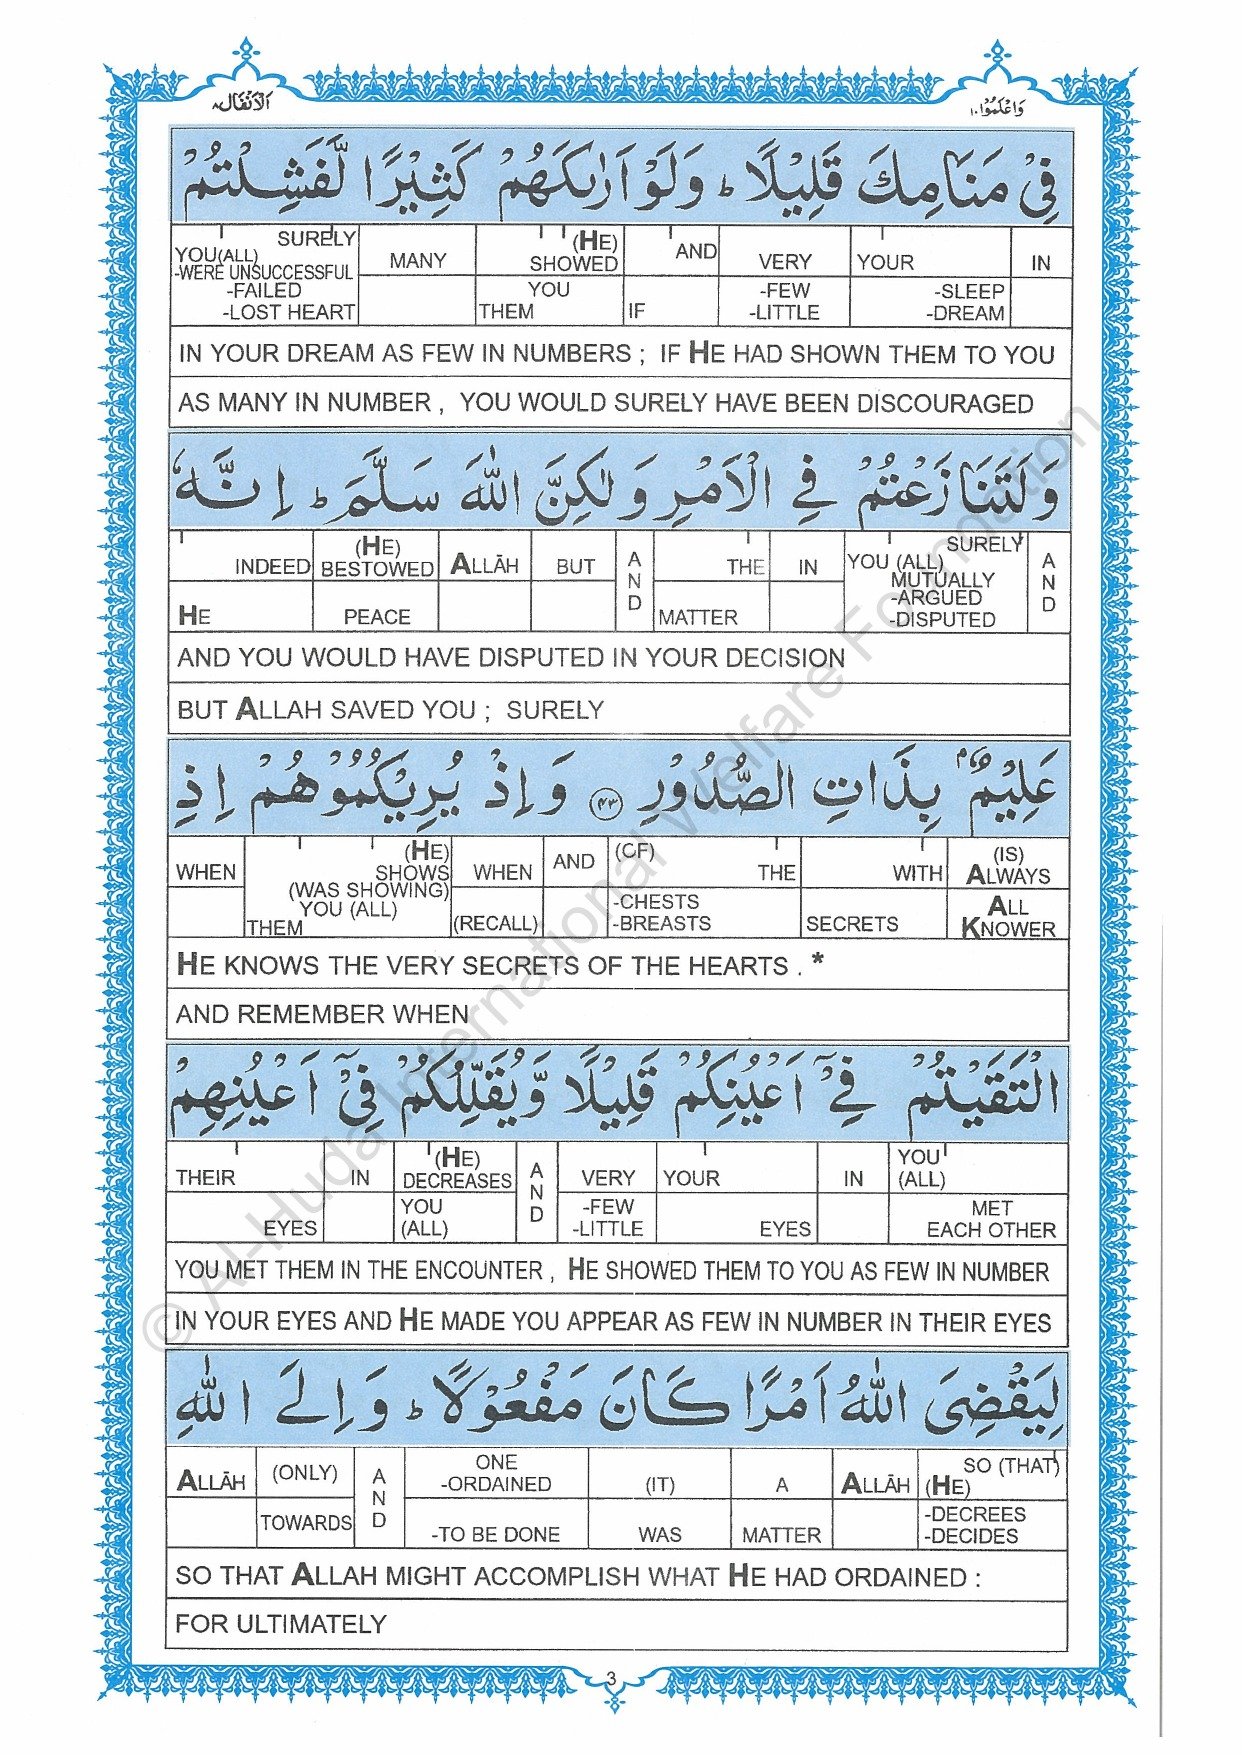 الانفال ٨
واعلموا ١٠
فِیْ مَنَامِكَ قَلِیْلًا ؕ وَلَوْ اَرٰىكَهُمْ كَثِیْرًا لَّفَشِلْتُمْ
IN
YOUR -SLEEP -DREAM
VERY -FEW -LITTLE
AND IF
(HE) SHOWED YOU THEM
MANY
SURELY YOU(ALL) -WERE UNSUCCESSFUL -FAILED -LOST HEART
IN YOUR DREAM AS FEW IN NUMBERS ; IF HE HAD SHOWN THEM TO YOU
AS MANY IN NUMBER , YOU WOULD SURELY HAVE BEEN DISCOURAGED
وَلَتَنَازَعْتُمْ فِی الْاَمْرِ وَلٰكِنَّ اللّٰهَ سَلَّمَ ؕ اِنَّهٗ
AND
SURELY YOU (ALL) MUTUALLY -ARGUED -DISPUTED
IN
THE MATTER
AND
BUT
ALLĀH
(HE) BESTOWED PEACE
INDEED HE
AND YOU WOULD HAVE DISPUTED IN YOUR DECISION
BUT ALLAH SAVED YOU ; SURELY
عَلِیْمٌۢ بِذَاتِ الصُّدُوْرِ ﴿۴۳﴾ وَاِذْ یُرِیْكُمُوْهُمْ اِذِ
(IS) ALWAYS ALL KNOWER
WITH SECRETS
(CF) THE -CHESTS -BREASTS
AND
WHEN (RECALL)
(HE) SHOWS (WAS SHOWING) YOU (ALL) THEM
WHEN
HE KNOWS THE VERY SECRETS OF THE HEARTS . *
AND REMEMBER WHEN
الْتَقَیْتُمْ فِیْۤ اَعْیُنِكُمْ قَلِیْلًا وَّیُقَلِّلُكُمْ فِیْۤ اَعْیُنِهِمْ
YOU (ALL) MET EACH OTHER
IN
YOUR EYES
VERY -FEW -LITTLE
AND
(HE) DECREASES YOU (ALL)
IN
THEIR EYES
YOU MET THEM IN THE ENCOUNTER , HE SHOWED THEM TO YOU AS FEW IN NUMBER
IN YOUR EYES AND HE MADE YOU APPEAR AS FEW IN NUMBER IN THEIR EYES
لِیَقْضِیَ اللّٰهُ اَمْرًا كَانَ مَفْعُوْلًا ؕ وَاِلَی اللّٰهِ
SO (THAT) (HE) -DECREES -DECIDES
ALLĀH
A MATTER
(IT) WAS
ONE -ORDAINED -TO BE DONE
AND
(ONLY) TOWARDS
ALLĀH
SO THAT ALLAH MIGHT ACCOMPLISH WHAT HE HAD ORDAINED :
FOR ULTIMATELY
3
© Al-Huda International Welfare Foundation